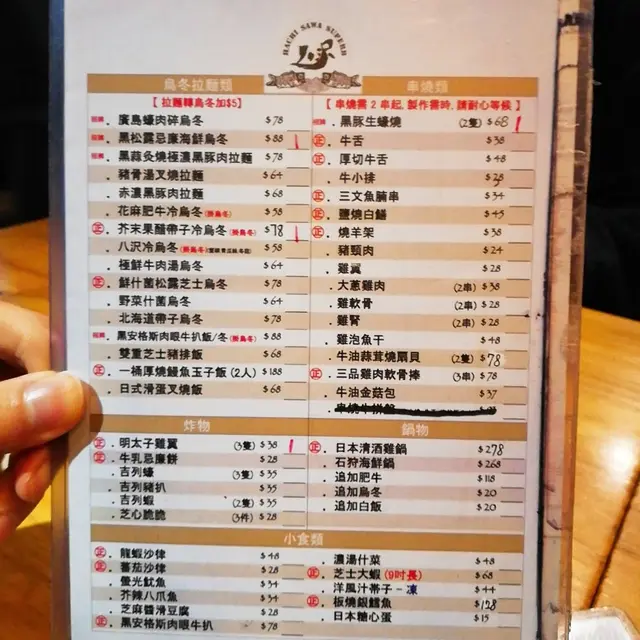 HACHI SAWA SUPERB
烏冬拉麵類
【 拉麵轉烏冬加$5】
廣島蠔肉碎烏冬 $78
黑松露忌廉海鮮烏冬 $88
黑蒜灸燒極濃黑豚肉拉麵 $78
豬骨湯叉燒拉麵 $64
赤濃黑豚肉拉麵 $68
花麻肥牛冷烏冬 $58
㊣ 芥末果醋帶子冷烏冬 $78
八沢冷烏冬 $58
極鮮牛肉湯烏冬 $64
㊣ 鮮什菌松露芝士烏冬 $78
野菜什菌烏冬 $64
北海道帶子烏冬 $78
黑安格斯肉眼牛扒飯/冬 $88
雙重芝士豬排飯 $68
㊣ 一桶厚燒鰻魚玉子飯 (2人) $188
日式滑蛋叉燒飯 $68
串燒類
【 串燒需 2 串起, 製作需時, 請耐心等候 】
黑豚生蠔燒 (2隻) $68
㊣ 牛舌 $38
㊣ 厚切牛舌 $48
牛小排
㊣ 三文魚腩串 $34
㊣ 鹽燒白鱔 $45
㊣ 燒羊架 $38
豬頸肉 $24
雞翼 $28
大蔥雞肉 (2串) $38
雞軟骨 (2串) $28
雞腎 (2串) $28
雞泡魚干 $48
牛油蒜茸燒扇貝 (2隻) $78
㊣ 三品雞肉軟骨捧 (3串) $78
牛油金菇包 $37
炸物
㊣ 明太子雞翼 (3隻) $38
㊣ 牛乳忌廉餅 $28
吉列蠔 (3隻) $35
吉列豬扒 $35
吉列蝦 (2隻) $35
芝心脆脆 (3件) $28
鍋物
㊣ 日本清酒雞鍋 $278
石狩海鮮鍋 $268
追加肥牛 $118
追加烏冬 $20
追加白飯 $20
小食類
㊣ 龍蝦沙律 $48
㊣ 蕃茄沙律 $28
螢光魷魚 $34
芥辣八爪魚 $34
芝麻醬滑豆腐 $28
㊣ 黑安格斯肉眼牛扒 $78
濃湯什菜 $48
㊣ 芝士大蝦 (9吋長) $68
洋風汁帶子 - 凍 $44
㊣ 板燒銀鱈魚 $128
日本糖心蛋 $15